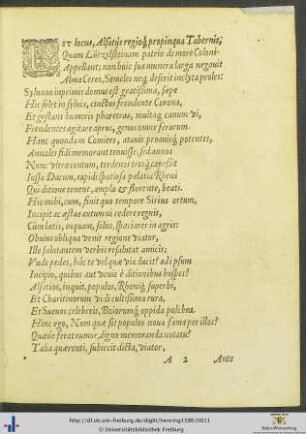 EST locus, Alsatijs regioq; propinqua Tabernis,
Quam Lützelsteinam patrio de more Coloni
Appellant: non huic sua munera larga negavit
Alma Ceres, Semeles neq; deserit inclyta proles:
Sylvano inprimis domus est gratissima, sæpe
Hic solet in sylvis, cinctus frondente Corona,
Et gestans humeris pharetras, multaq; canum vi,
Frendentes agitare apros, genus omne ferarum
Hanc quondam Comites, atavis proavisq; potentes,
Annales fidi memorant tenuisse, sed annos
Nunc ultra centum, terdenos tresq; capessit
Iussa Ducum, rapidi spatiosa palatia Rheni
Qui ditione tenent, ampla & florente, beati.
Hic mihi, cum, finit quo tempore Sirius ortum,
Incipit ac æstas autumno cedere regnis,
Cum latis, inquam, solus, spaciarer in agris:
Obvius obliqua venit regione viator,
Ille salutantem verbis resalutat amicis:
Unde pedes, huc te vel quæ via ducit? ad ipsum
Incipio, quibus aut venis è ditionibus hospes?
Alsatios, inquit, populos, Rheniq; superbi,
Et Charitinorum vidi cultissima rura,
Et Suevos celebreis, Boiorumq; oppida pulchra.
Hinc ego, Num quæ sit populos nova fama per illos?
Quæve feratur rumor, digna memoranda notatu?
Talia quærenti, subiecit dicta, viator,
A 2 Ante
http://dl.ub.uni-freiburg.de/diglit/henning1586/0011
© Universitätsbibliothek Freiburg